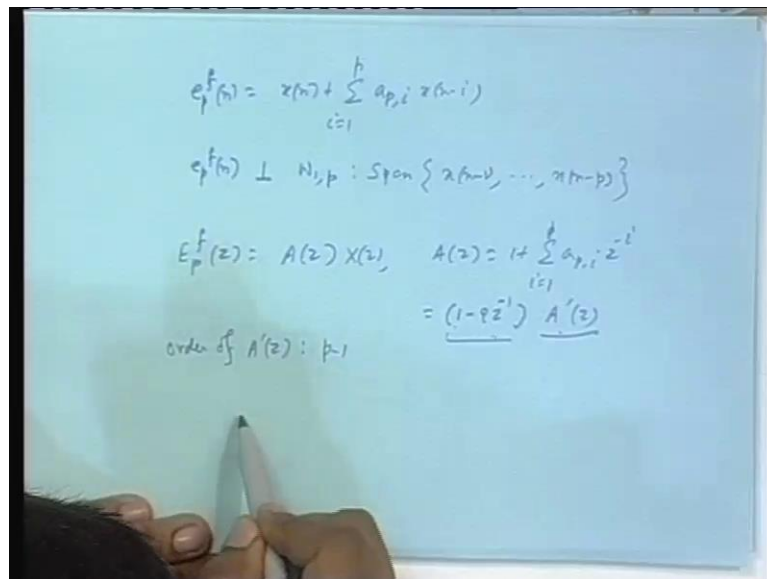 e_p^f(n) = x(n) + \sum_{i=1}^{p} a_{p,i} x(n-i)
e_p^f(n) ⊥ W_{1,p} : Span { x(n-1), ..., x(n-p) }
E_p^f(z) = A(z) X(z), A(z) = 1 + \sum_{i=1}^{p} a_{p,i} z^{-i}
= (1 - qz^{-1}) A'(z)
order of A'(z) : p-1